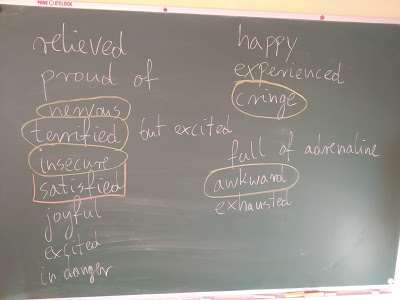 MINE O'CLOCK
relieved
proud of
nervous
terrified but excited
insecure
satisfied
joyful
excited
in danger
happy
experienced
cringe
full of adrenaline
awkward
exhausted